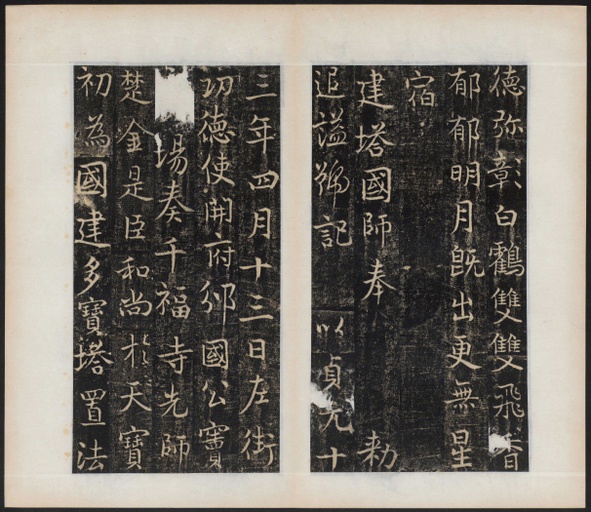 德弥彰白鸖雙雙飛香
郁郁明月既出更無星
宿
建塔國師奉 勑
追謚號記 以貞元十
三年四月十三日左街
功德使開府邠國公竇
場奏千福寺先師
楚金是臣和尚於天寶
初為國建多寶塔置法